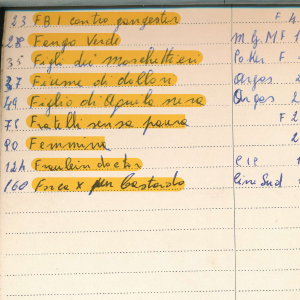 23 FBI contro gangster F 4
28 Fango Verde M.G.M F 1
35 Figli dei Moschettieri Poker F 4
37 Fiume di dollari Orgas. 2
49 Figlio di Aquila nera Orgas 2
75 Fratelli senza paura F 2
90 Femmina 2
124 Fraulein doctor CIC 1
160 Forca x un bastardo Cine Sud